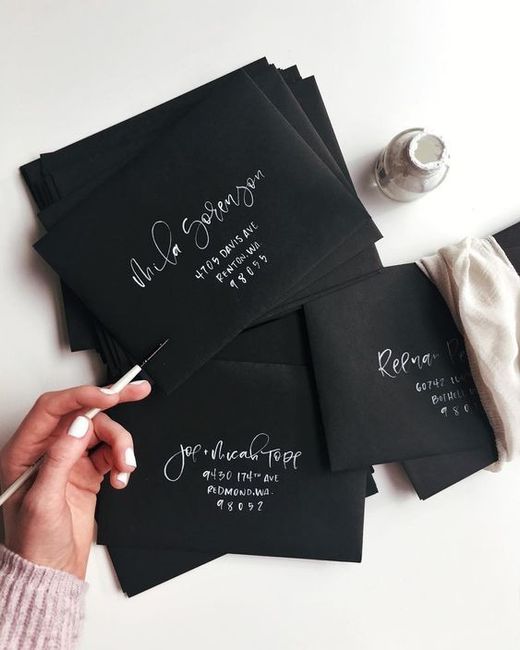 Mila Sorenson
4705 DAVIS AVE
RENTON, WA.
98055
Joe + Micah Topp
9430 174TH AVE
REDMOND, WA.
98052
60742
BOTHELL
980